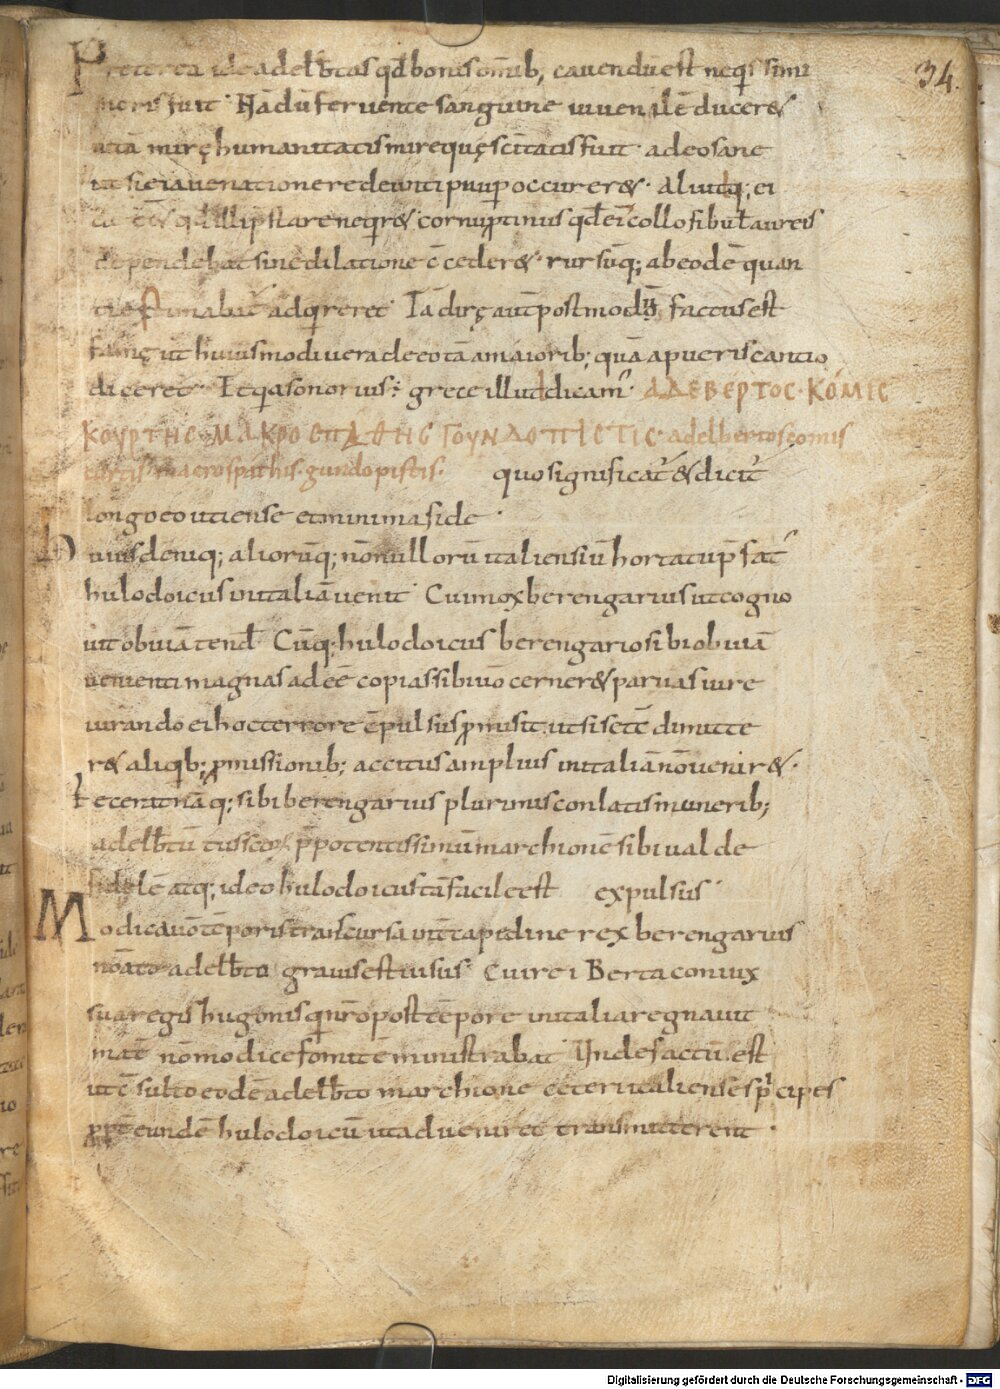 34.
Preterea idē adelb̄tus qđ bonis om̄ib, cauendū est neqissimi
moris fuit Nā dū feruente sanguine iuuenilē ducer&
uitā mirę humanitatis mirequę scitatis fuit adeo sane
ut sic ia uenatione redeunti paup occurrer& · aliudq; ei
qđ illi p̄stare neqr& cornu ptinus qđ ei collo fibul aureis
dependebat sine dilatione c̄ceder& · rursūq; ab eodē quan
ti estimabat adqireret Ia dirę aut̄ postmodū factus est
famę ut huiusmodi uera de eo tā a maiorib; quā a pueris cantio
diceret · Et qa sonorius ÷ grece illud dicam̄ · ΑΔΕΒΕΡΤΟC · ΚΟΜΙC
ΚΟΥΡΤΗC · ΜΑΚΡΟCΠΑΘΗC ΓΟΥΝΔΟΠΙCΤΙC · adelbertos comis
curtis macrospathis · gundopistis · quo significat̄ & dicit̄
longo eo uti ense et minima fide ·
huius deniq; aliorūq; nōnullorū italiensiū hortatu p̄fat
hulodoicus in italiā uenit Cui mox berengarius ut cogno
uit obuiā tend̄ Cūq; hulodoicus berengario sibi obuiā
uenienti magnas adeē copias sibi uō cerner& paruas iure
iurando ei hoc terrore c̄pulsus p̄misit ut si se tc̄ dimitte
r& aliqib; p̄missionib; accitus amplius in italiā nō uenir& ·
Fecerat nāq; sibi berengarius plurimus conlatis munerib;
adelb̄tū tuscię p̄potentissimū marchionē sibi ualde
fidelē atq; ideo hulodoicus tā facile est expulsus
Modica uō tēporis transcursa int̄capedine rex berengarius
nōato adelb̄to grauis est uisus Cui rei Berta coniux
sua regis hugonis qi nr̄o post tēpore in italia regnauit
mat̄ nō modice fomitē ministrabat Unde factū est
ut c̄sulto eodē adelb̄to marchione ceteri italiense p̄cipes
ppt̄ eundē hulodoicū ut adueniret transmitterent ·
Digitalisierung gefördert durch die Deutsche Forschungsgemeinschaft - DFG